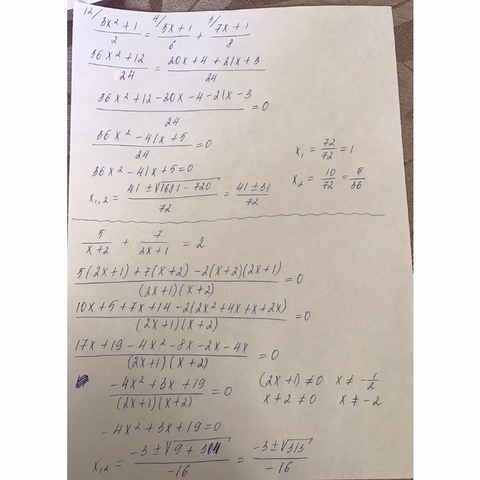 12/ 3x² + 1 / 2 = 4/ 5x + 1 / 6 + 3/ 7x + 1 / 8
36x² + 12 / 24 = 20x + 4 + 21x + 3 / 24
36x² + 12 - 20x - 4 - 21x - 3 / 24 = 0
36x² - 41x + 5 / 24 = 0
x₁ = 72/72 = 1
36x² - 41x + 5 = 0
x₂ = 10/72 = 5/36
x₁,₂ = 41 ± √1681 - 720 / 72 = 41 ± 31 / 72
5 / x + 2 + 7 / 2x + 1 = 2
5(2x + 1) + 7(x + 2) - 2(x + 2)(2x + 1) / (2x + 1)(x + 2) = 0
10x + 5 + 7x + 14 - 2(2x² + 4x + x + 2x) / (2x + 1)(x + 2) = 0
17x + 19 - 4x² - 8x - 2x - 4x / (2x + 1)(x + 2) = 0
-4x² + 3x + 19 / (2x + 1)(x + 2) = 0
(2x + 1) ≠ 0 x ≠ -1/2
x + 2 ≠ 0 x ≠ -2
-4x² + 3x + 19 = 0
x₁,₂ = -3 ± √9 + 304 / -16 = -3 ± √313 / -16